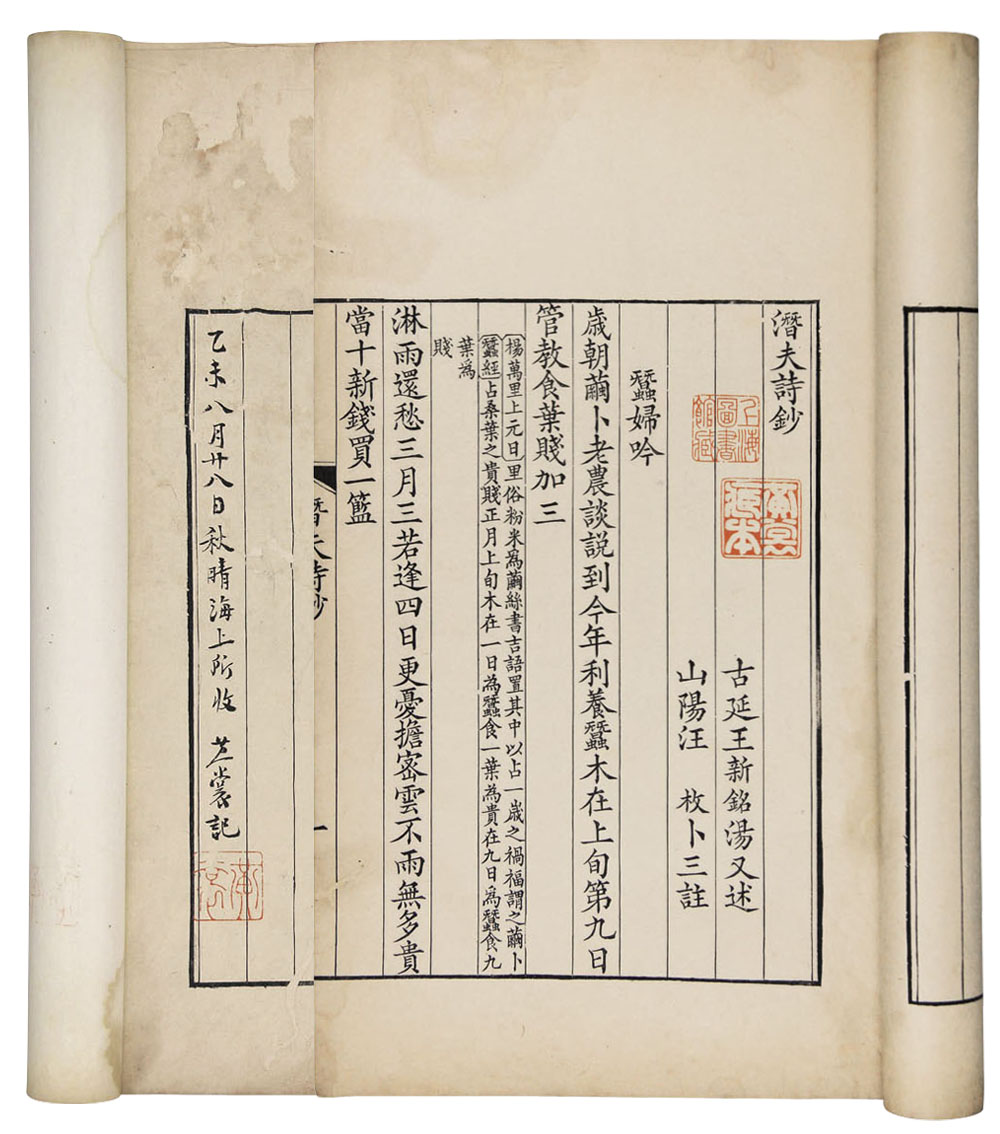 潛夫詩鈔
上海圖書館藏
黃裳藏本
古延王新銘湯又述
山陽汪 枚卜三註
蠶婦吟
歲朝繭卜老農談説到今年利養蠶木在上旬第九日
管教食葉賤加三
楊萬里上元日里俗粉米為繭絲書吉語置其中以占一歲之禍福謂之繭卜
蠶經占桑葉之貴賤正月上旬木在一日為蠶食一葉為貴在九日為蠶食九
葉為
賤
淋雨還愁三月三若逢四日更憂擔密雲不雨無多貴
當十新錢買一籃
潛夫詩鈔
一
乙未八月廿八日秋晴海上所收 黃裳記